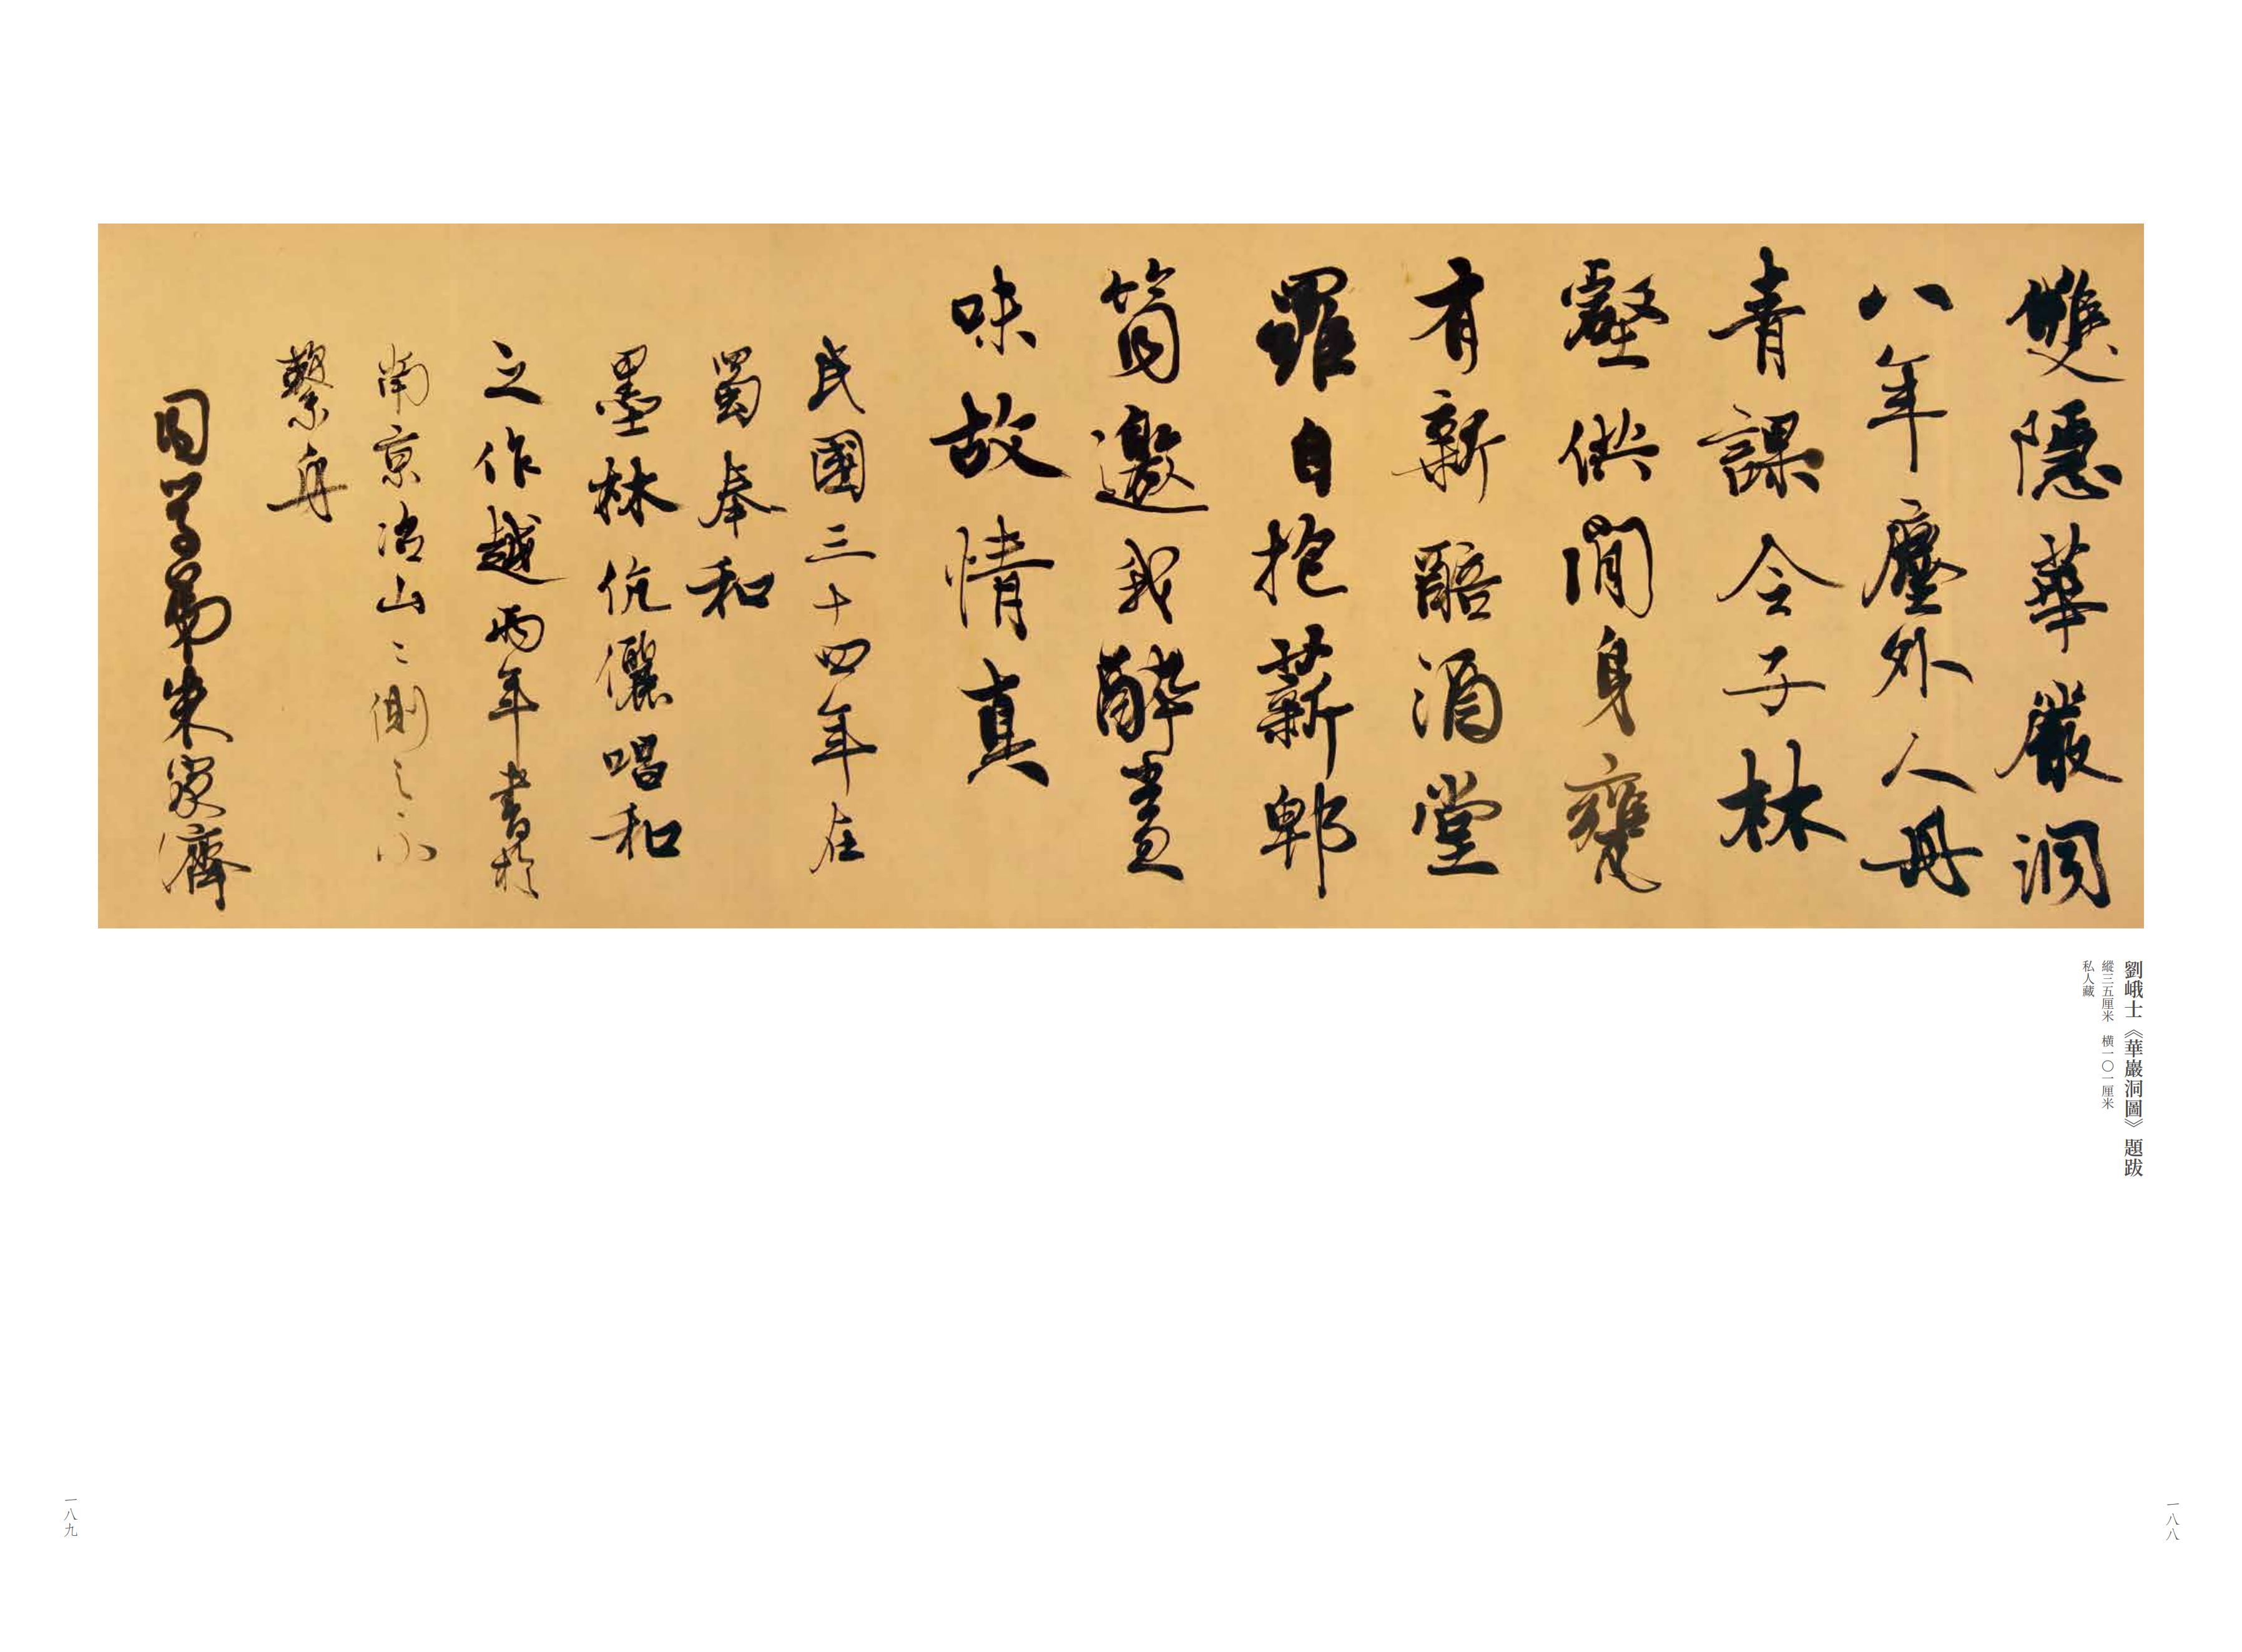 雙隱華嚴洞
八年塵外人丹
青課令子林
壑供閒身甕
有新醅酒堂
羅自抱薪郫
筒邀我醉畫
味故情真
民國三十四年在
蜀奉和
墨林伉儷唱和
之作越兩年書於
南京冶山〻側之不
繫舟
同學弟朱家濟
劉峨士《華巖洞圖》題跋
縱三五厘米　橫一〇一厘米
私人藏
一八八
一八九